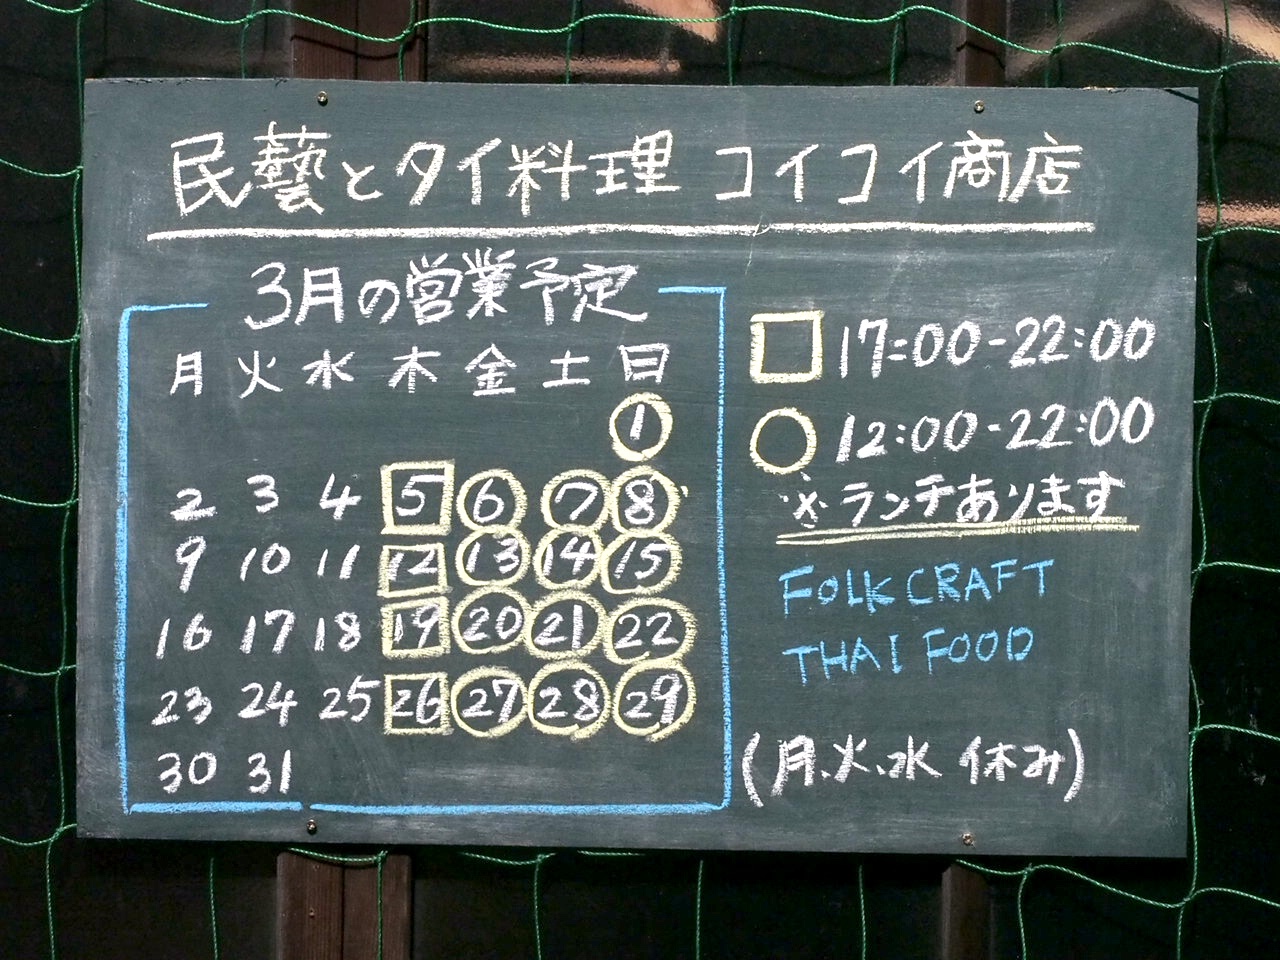 民藝とタイ料理 コイコイ商店
3月の営業予定
月 火 水 木 金 土 日
1
2 3 4 5 6 7 8
9 10 11 12 13 14 15
16 17 18 19 20 21 22
23 24 25 26 27 28 29
30 31
17:00-22:00
12:00-22:00
※ランチあります
FOLK CRAFT
THAI FOOD
(月、火、水 休み)